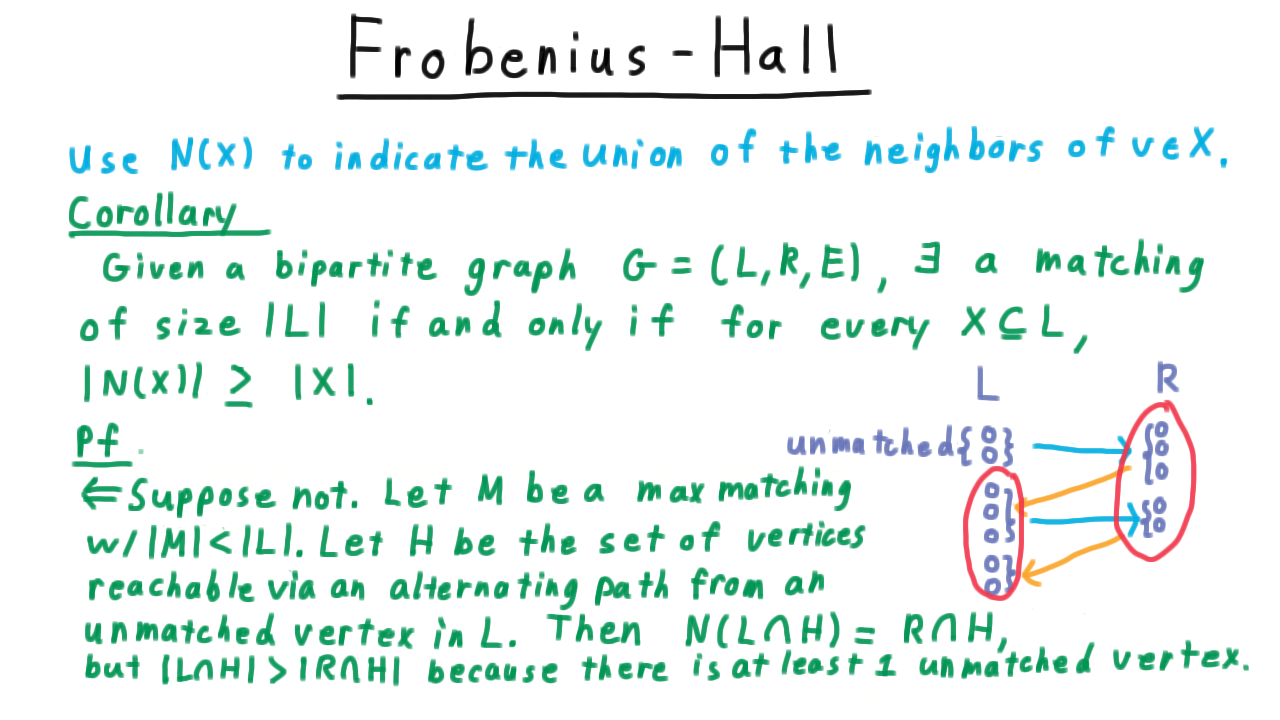 Frobenius - Hall
Use N(X) to indicate the union of the neighbors of v∈X.
Corollary
Given a bipartite graph G = (L,R,E), ∃ a matching
of size |L| if and only if for every X⊆L,
|N(X)| ≥ |X|.
L R
Pf.
unmatched{
⇐ Suppose not. Let M be a max matching
w/ |M|<|L|. Let H be the set of vertices
reachable via an alternating path from an
unmatched vertex in L. Then N(L∩H) = R∩H,
but |L∩H| > |R∩H| because there is at least 1 unmatched vertex.